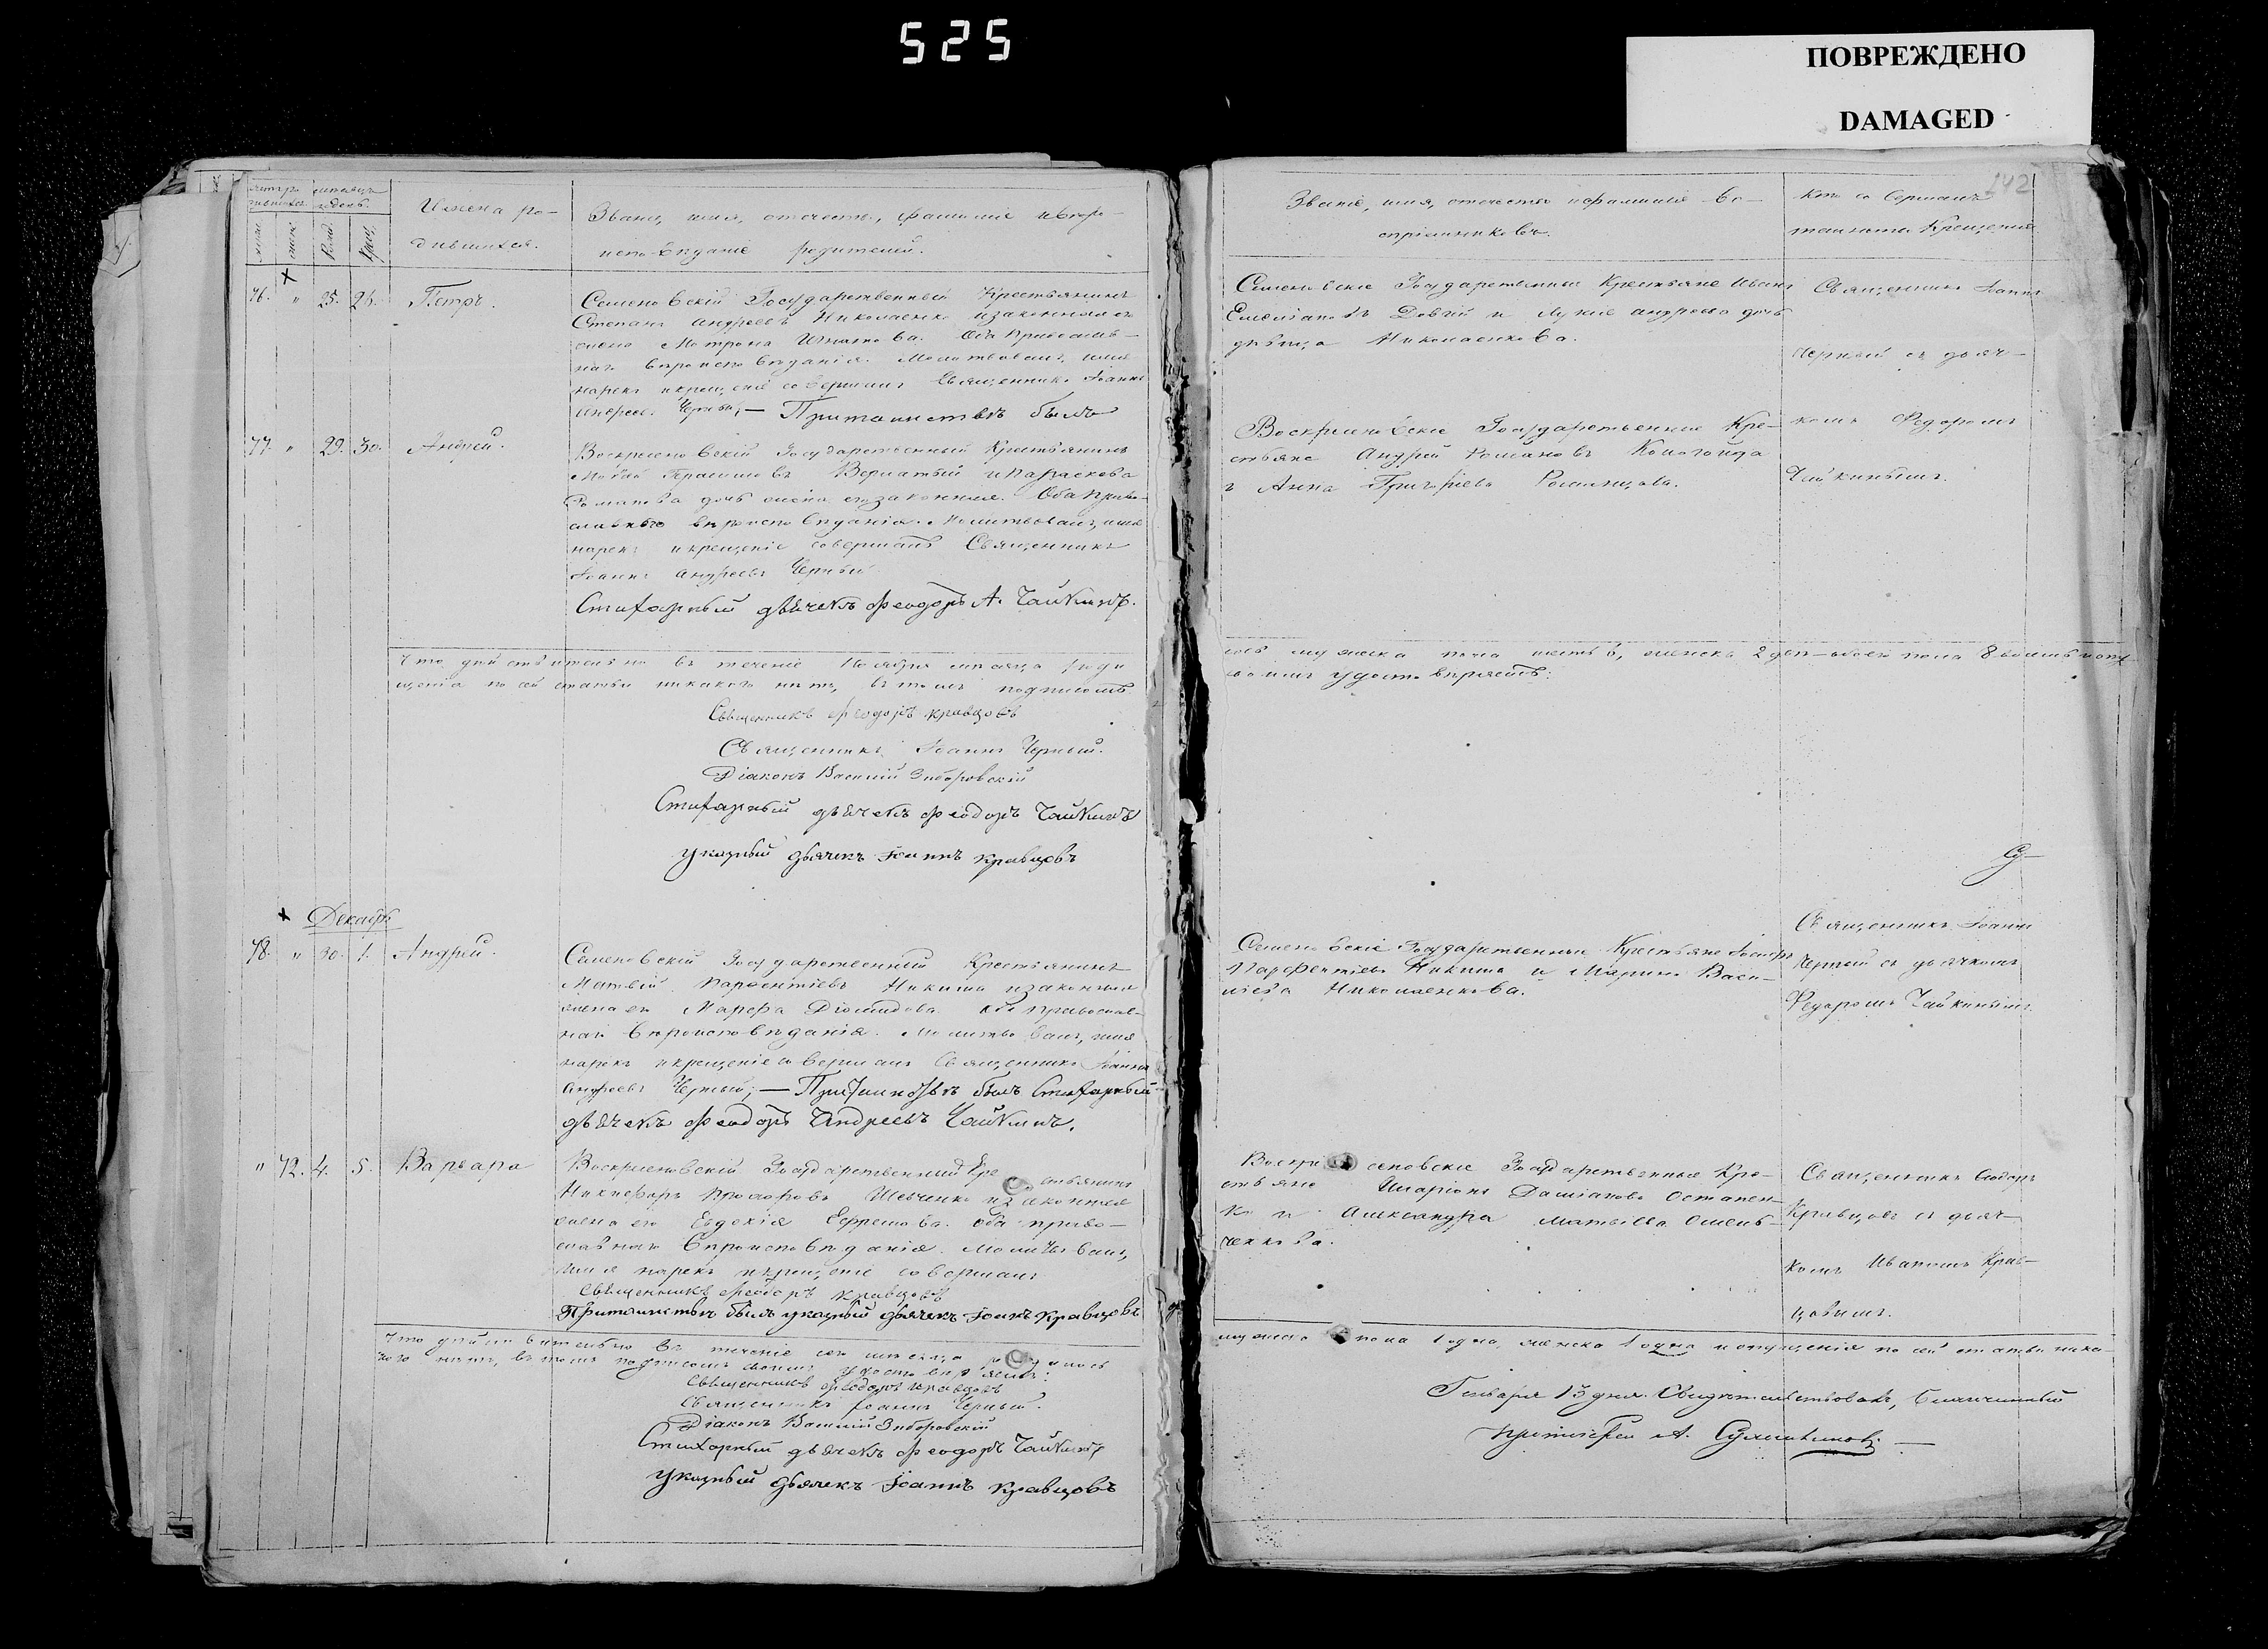 525
ПОВРЕЖДЕНО
DAMAGED
142
Имена ро-
дившихся.
Званіе, имя, отчество, фамилія и вѣро-
исповѣданіе родителей.
76. " 25. 26. Петръ.
Семеновскій Государственный Крестьянинъ
Степанъ Андреевъ Николаенко и законная его
жена Матрона Игнатова. Оба православ-
наго вѣроисповѣданія. Молитвовалъ, имя
нарекъ и крещеніе совершалъ Священникъ Іоаннъ
Андреевъ Черный; — При таинствѣ былъ
77. " 29. 30. Андрей.
Воскресеновскій Государственный Крестьянинъ
Герасимовъ и Параскева
Романова дочь жена его законная. Оба право-
славнаго вѣроисповѣданія. Молитвовалъ, имя
нарекъ и крещеніе совершалъ Священникъ
Іоаннъ Андреевъ Черный
Стихарный дьячекъ Феодоръ А. Чайкинъ.
Что дѣйствительно въ теченіе Ноября мѣсяца роди
щенія по сей статьи никакого нѣтъ, въ томъ подписомъ
Священникъ Феодоръ Кравцовъ
Священникъ Іоаннъ Черный.
Діаконъ Василій Зиборовскій
Стихарный дьячекъ Феодоръ Чайкинъ
Указный дьячекъ Іоаннъ Кравцовъ
Декабрь
78. " 30. 1. Андрей.
Семеновскій Государственный Крестьянинъ
Матвій Парфентіевъ Никита и законная
жена его Марфа Діомидова. Оба православ-
наго вѣроисповѣданія. Молитвовалъ, имя
нарекъ и крещеніе совершалъ Священникъ Іоаннъ
Андреевъ Черный; — При таинствѣ былъ Стихарный
дьячекъ Феодоръ Андреевъ Чайкинъ.
" 72. 4. 5. Варвара
Воскресеновскій Государственный Кре стьянинъ
Никифоръ Прохоровъ Шевченко и законная
жена его Евдокія Ефремова. Оба право-
славнаго вѣроисповѣданія. Молитвовалъ,
имя нарекъ и крещеніе совершалъ
Священникъ Феодоръ Кравцовъ
При таинствѣ былъ указный дьячекъ Іоаннъ Кравцовъ
Что дѣйствительно въ теченіе сего мѣсяца родилось
кого нѣтъ, въ томъ подписомъ своимъ удостовѣряемъ:
Священникъ Феодоръ Кравцовъ
Священникъ Іоаннъ Черный.
Діаконъ Василій Зиборовскій
Стихарный дьячекъ Феодоръ Чайкинъ
Указный дьячекъ Іоаннъ Кравцовъ
Званіе, имя, отчество и фамилія во-
спріемниковъ.
Кто совершалъ
таинство Крещенія
Семеновскіе Государственные Крестьяне Иванъ
Емельяновъ Довгій и Андреева дочь
дѣвица Николаенкова.
Священникъ Іоаннъ
Черный съ дьяч-
комъ Федоромъ
Чайкинымъ.
Воскресеновскіе Государственные Кре-
стьяне Андрей Романовъ
и Анна Григорьева
мужска пола шесть 6, женска 2 двѣ — обоего пола 8
удостовѣряетъ:
Семеновскіе Государственные Крестьяне
Парфентіевъ Никита и Марина Васи-
ліева Николаенкова.
Священникъ Іоаннъ
Черный съ дьячкомъ
Федоромъ Чайкинымъ.
Воскресеновскіе Государственные Кре-
стьяне Иларіонъ Даміановъ Остапен-
ко и Александра Матвіева Омель-
ченкова.
Священникъ Феодоръ
Кравцовъ съ дьяч-
комъ Иваномъ Крав-
цовымъ.
мужска пола 1 одна, женска 1 одна и опущенія по сей статьи ника-
Генваря 13 дня. Свидѣтельствовалъ, Благочинный
Протоіерей А.